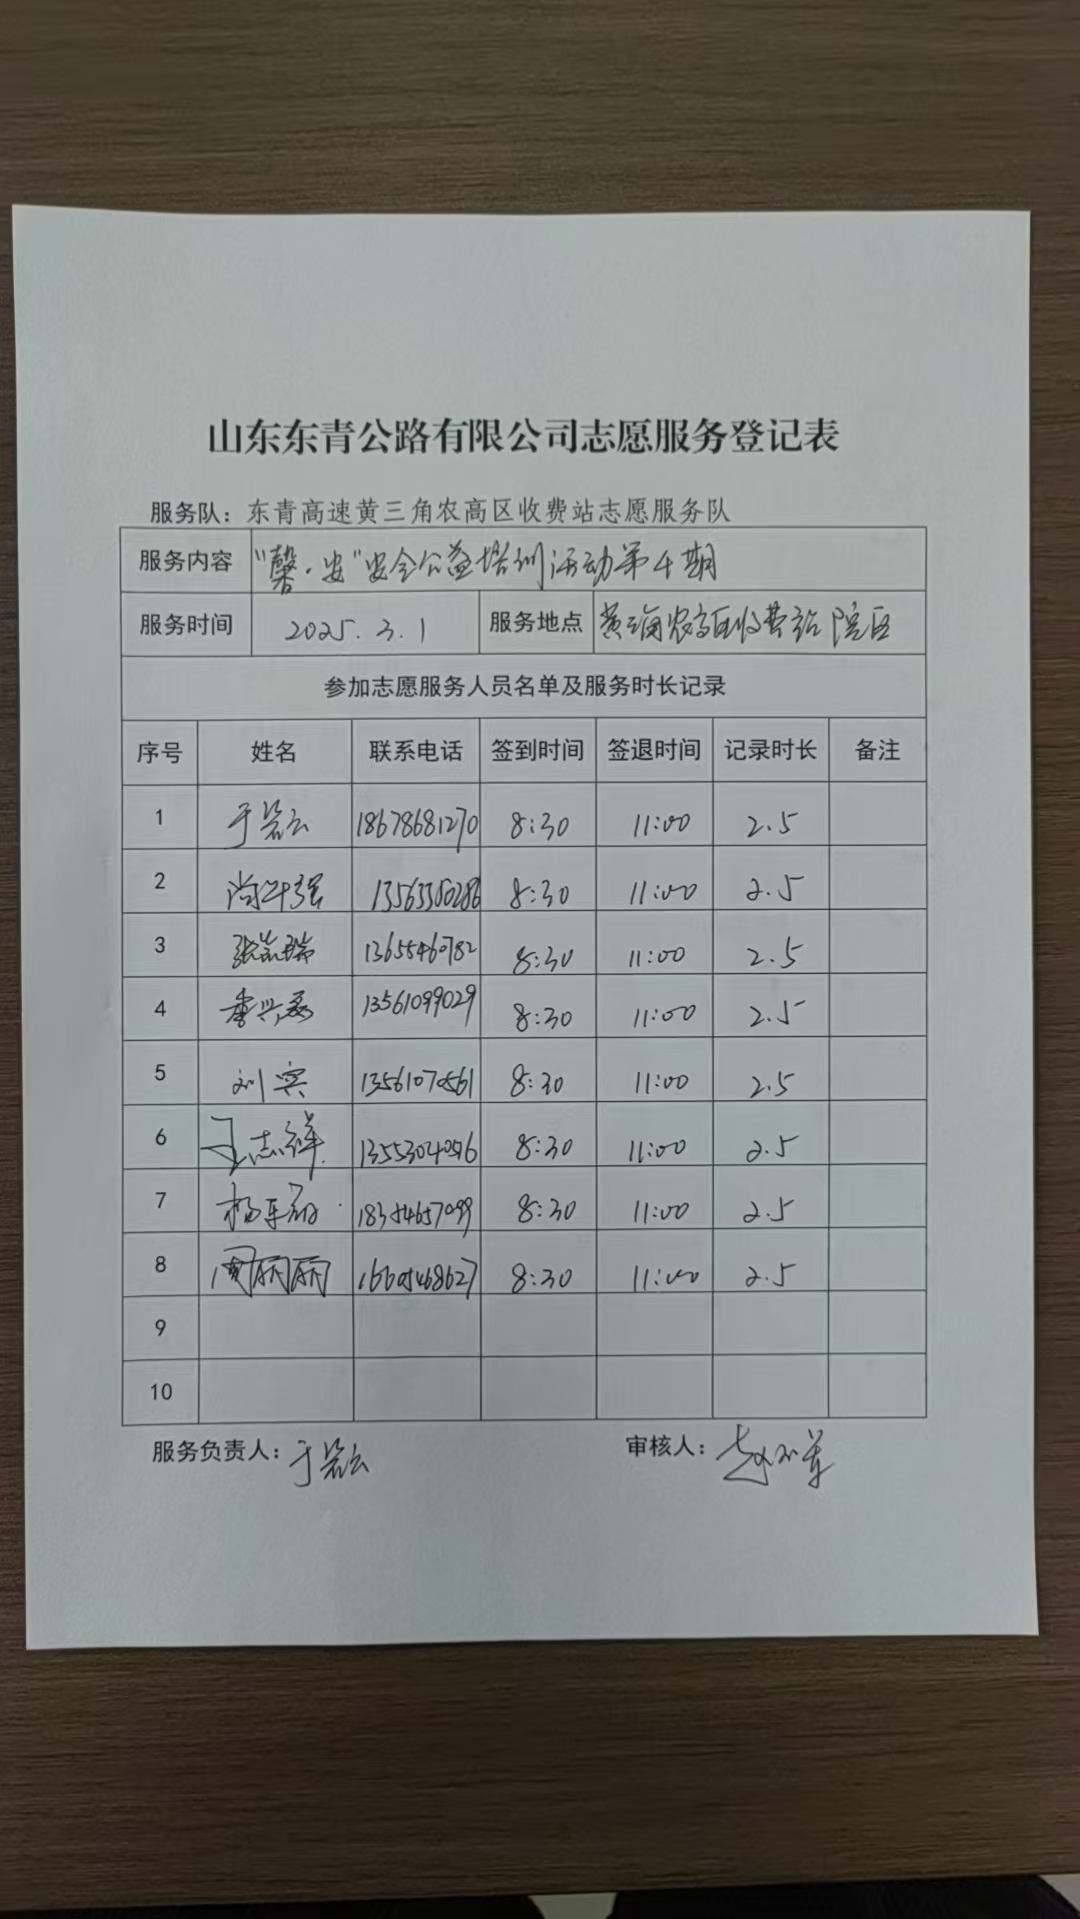 山东东青公路有限公司志愿服务登记表
服务队：东青高速黄三角农高区收费站志愿服务队
服务内容 “馨·安”安全公益培训活动第4期
服务时间 2025.3.1 服务地点 黄三角农高区收费站院区
参加志愿服务人员名单及服务时长记录
序号 姓名 联系电话 签到时间 签退时间 记录时长 备注
1 于 18678681270 8:30 11:00 2.5
2 尚华强 8:30 11:00 2.5
3 张凯瑞 13655460782 8:30 11:00 2.5
4 季兴磊 13561099029 8:30 11:00 2.5
5 刘宾 13561070561 8:30 11:00 2.5
6 王志祥 8:30 11:00 2.5
7 杨 18354657099 8:30 11:00 2.5
8 周丽丽 16605468627 8:30 11:00 2.5
9
10
服务负责人：于 审核人：赵